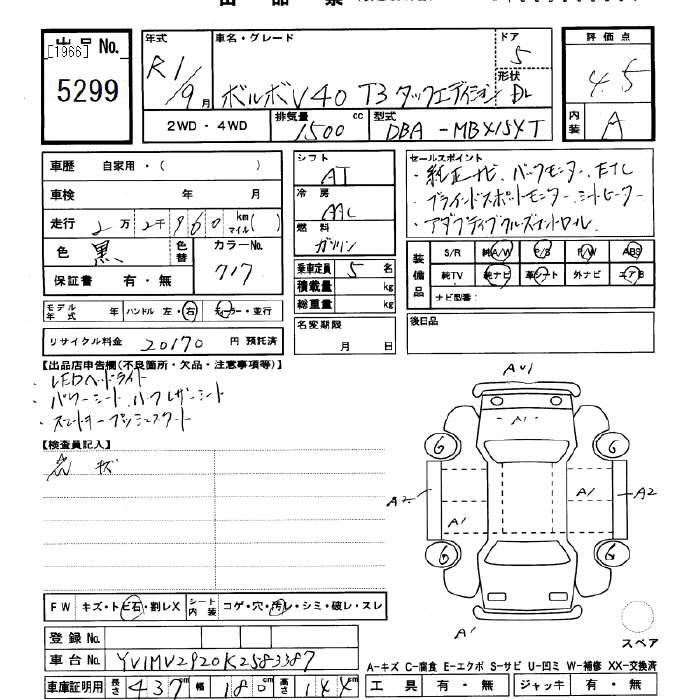 出品票
出品 No.
[1966]
5299
年式
R1/9月
車名・グレード
ボルボV40 T3 タックエディション
ドア
5
形状
評価点
4.5
内装
A
2WD・4WD
排気量
1500 cc
型式
DBA-MB4154T
車歴 自家用・( )
車検 年 月
走行 2万2千960 km マイル( )
色 黒 色替 カラーNo. 717
保証書 有・無
モデル年式 年 ハンドル 左・右 ディーラー・並行
リサイクル料金 20170 円 預託済
シフト
AT
冷房
AAC
燃料
ガソリン
乗車定員 5 名
積載量 kg
総重量 kg
名変期限
月 日
セールスポイント
・純正ナビ、バックモニター、ETC
・ブラインドスポットモニター、シートヒーター
・アダプティブクルーズコントロール
装備品
S/R 純A/W P/S P/W ABS
純TV 純ナビ 革シート 外ナビ エアB
ナビ型番:
後日品
【出品店申告欄(不良箇所・欠品・注意事項等)】
・LEDヘッドライト
・パワーシート、ハーフレザーシート
・スマートキー プッシュスタート
【検査員記入】
キズ
AU1
A1
6 6
A2 A1 A2
A1
6 6
A1
スペア
FW キズ・トビ石・割レX シート内装 コゲ・穴・汚レ・シミ・破レ・スレ
登録 No.
車台 No. YV1MV2920K2583387
車庫証明用 長さ 437 cm 幅 180 cm 高さ 144 cm
A-キズ C-腐食 E-エクボ S-サビ U-凹ミ W-補修 XX-交換済
工具 有・無 ジャッキ 有・無